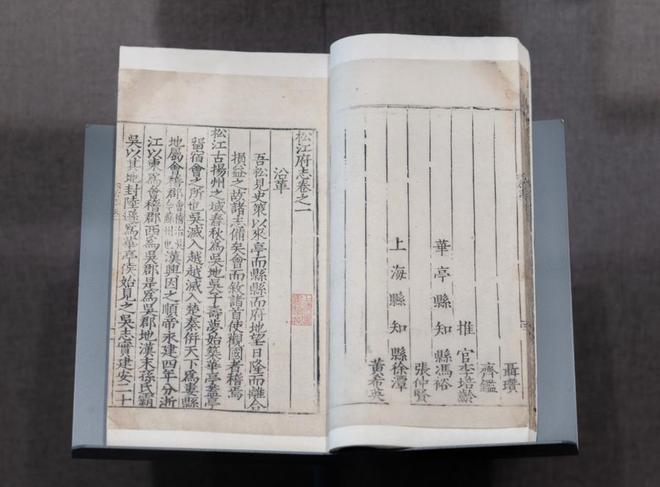 聶瓚
齊鑑
推官李培齡
華亭縣知縣馮裕
張仲賢
上海縣知縣徐潭
黃希英
松江府志卷之一
沿革
吾松見史策以來亭而縣縣而府地望日隆而離合
損益之故諸志備矣會而敘諸首使觀國者稽焉
松江古揚州之域春秋爲吳地吳子壽夢始築華亭盖亭
留宿會之所也吳滅入越越滅入楚秦併天下爲婁縣
地屬會稽郡漢興因之順帝永建四年分浙
江以東爲會稽郡西爲吳郡是爲吳郡地漢末孫氏霸
吳以其地封陸遜爲華亭侯始見之吳志實建安二十